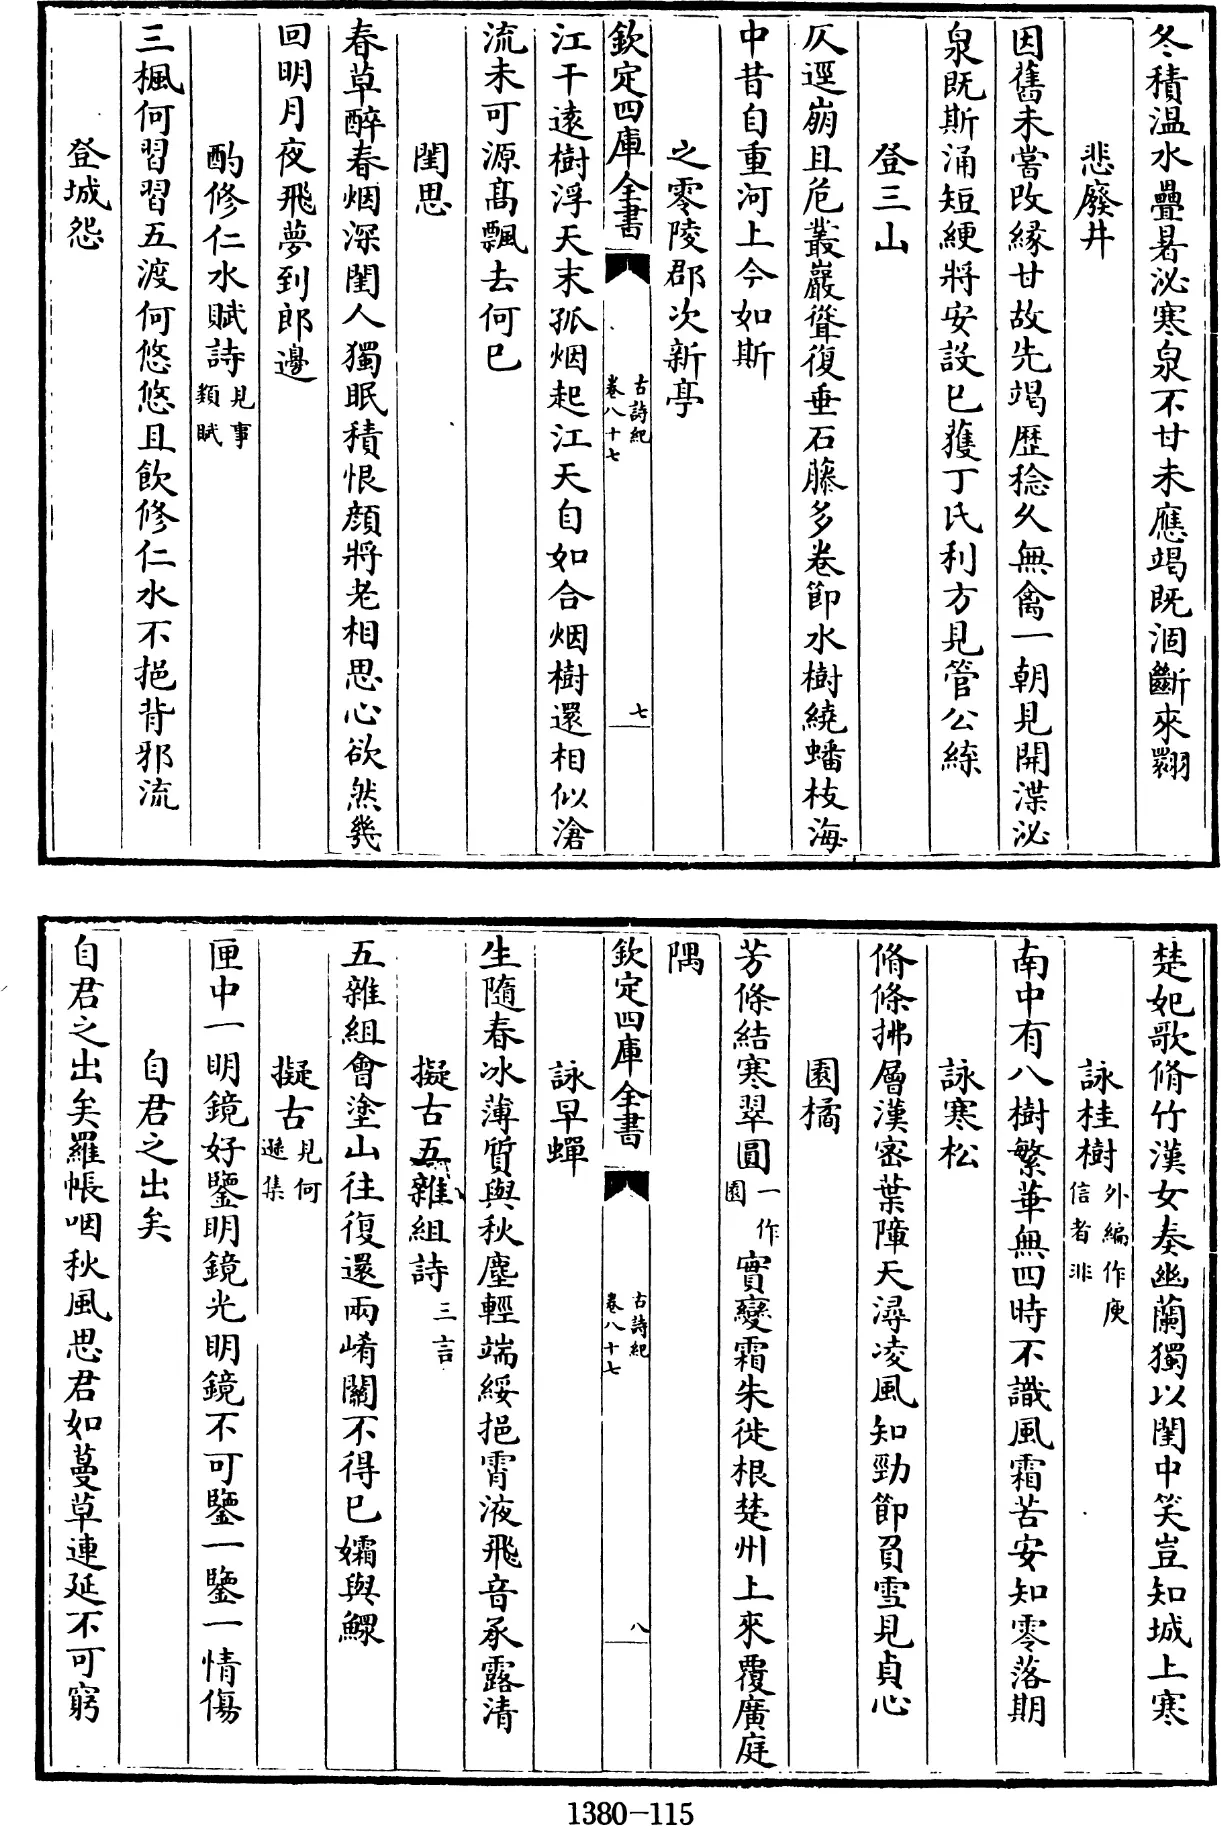 冬積温水疊暑泌寒泉不甘未應竭既涸斷來翾
悲廢井
因舊未嘗改縁甘故先竭歴稔久無禽一朝見開渫泌
泉既斯涌短綆將安設已獲丁氏利方見管公絲
登三山
仄逕崩且危叢巖聳復垂石藤多卷節水樹繞蟠枝海
中昔自重河上今如斯
之零陵郡次新亭
欽定四庫全書
古詩紀
卷八十七
七
江干遠樹浮天末孤烟起江天自如合烟樹還相似滄
流未可源髙飄去何已
閨思
春草醉春烟深閨人獨眠積恨顔將老相思心欲然幾
回明月夜飛夢到郎邊
酌修仁水賦詩見事
類賦
三楓何習習五渡何悠悠且飲修仁水不挹背邪流
登城怨
楚妃歌脩竹漢女奏幽蘭獨以閨中笑豈知城上寒
詠桂樹外編作庾
信者非
南中有八樹繁華無四時不識風霜苦安知零落期
詠寒松
脩條拂層漢宻葉障天潯凌風知勁節負雪見貞心
園橘
芳條結寒翠圓一作
園實變霜朱徙根楚州上來覆廣庭
隅
欽定四庫全書
古詩紀
卷八十七
八
詠早蟬
生隨春冰薄質與秋塵輕端綏挹霄液飛音承露清
擬古五雜組詩三言
五雜組會塗山往復還兩崤關不得已孀與鰥
擬古見何
遜集
匣中一明鏡好鑒明鏡光明鏡不可鑒一鑒一情傷
自君之出矣
自君之出矣羅帳咽秋風思君如蔓草連延不可窮
1380-115